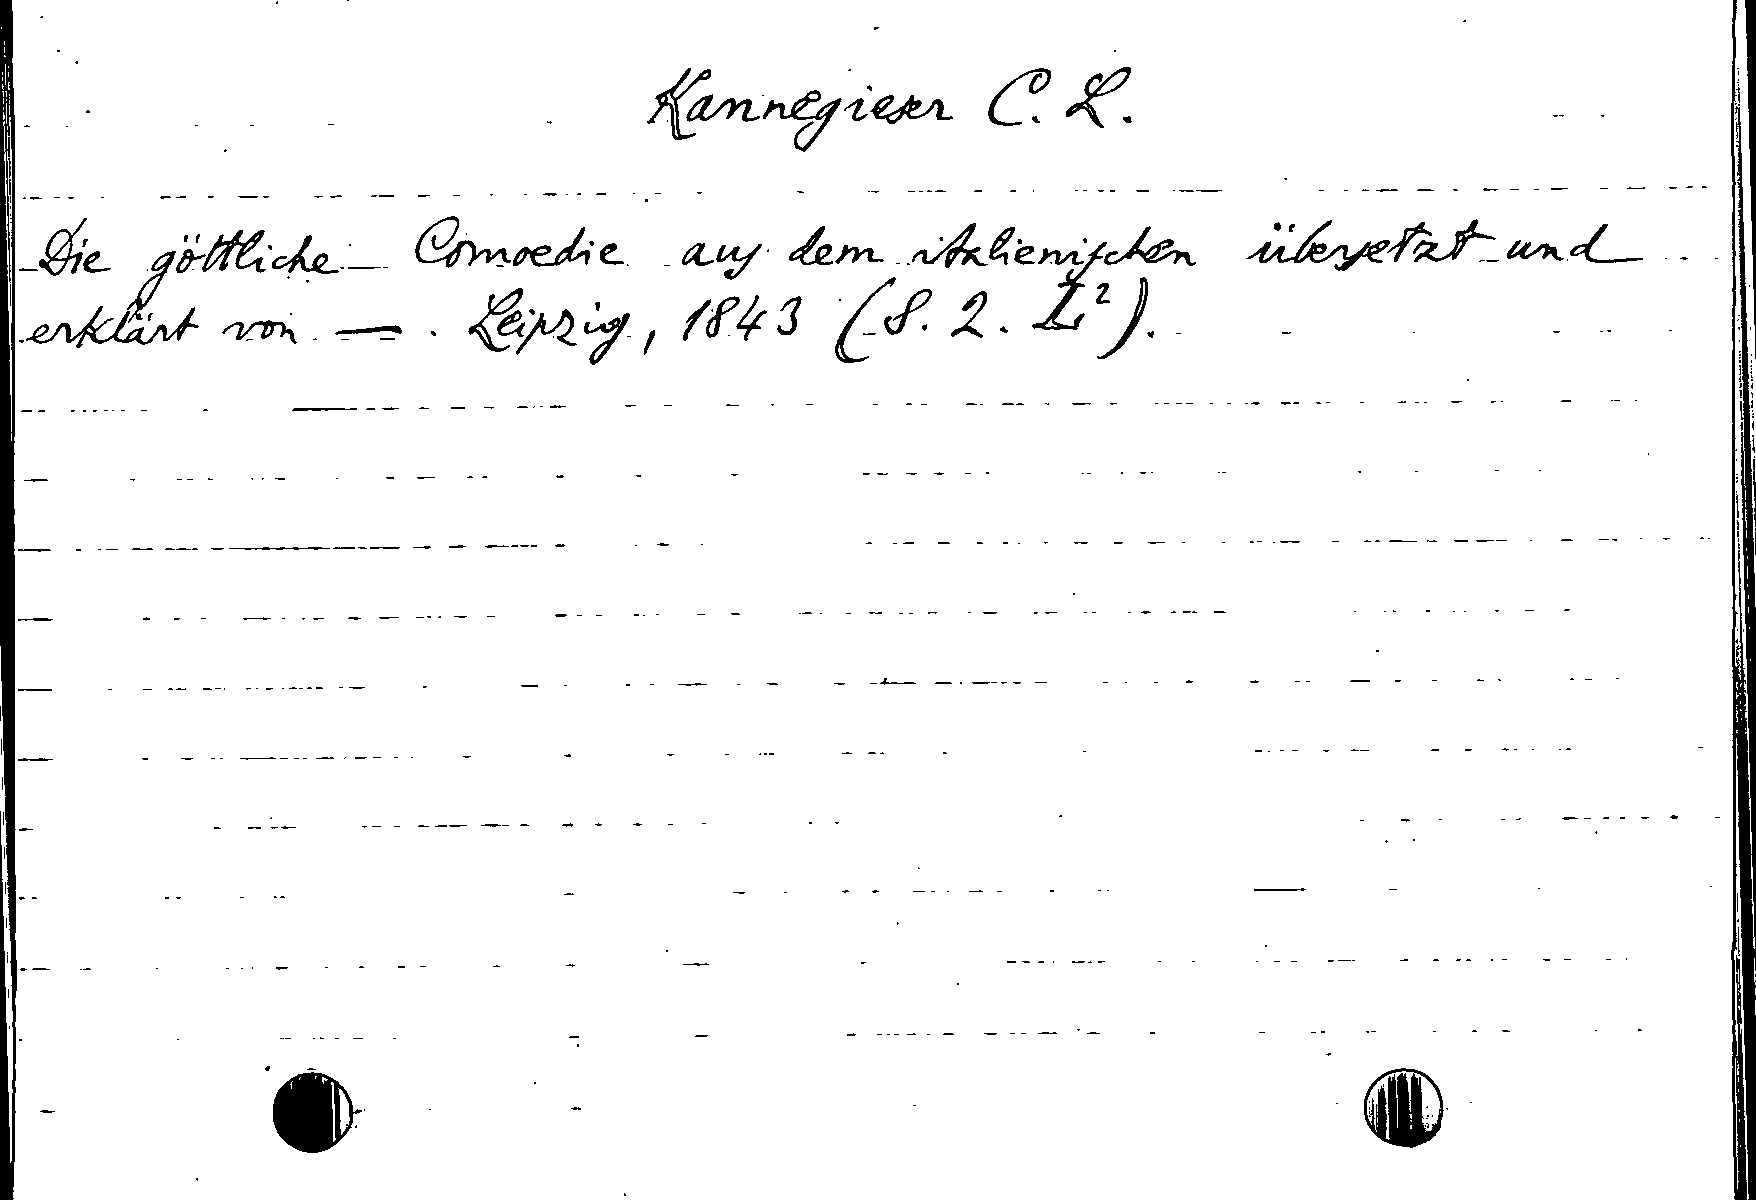 Kannegieser C. L.
Die göttliche Comoedie aus dem italienischen übersetzt und
erklärt von — . Leipzig, 1843 (8. 2. L²).